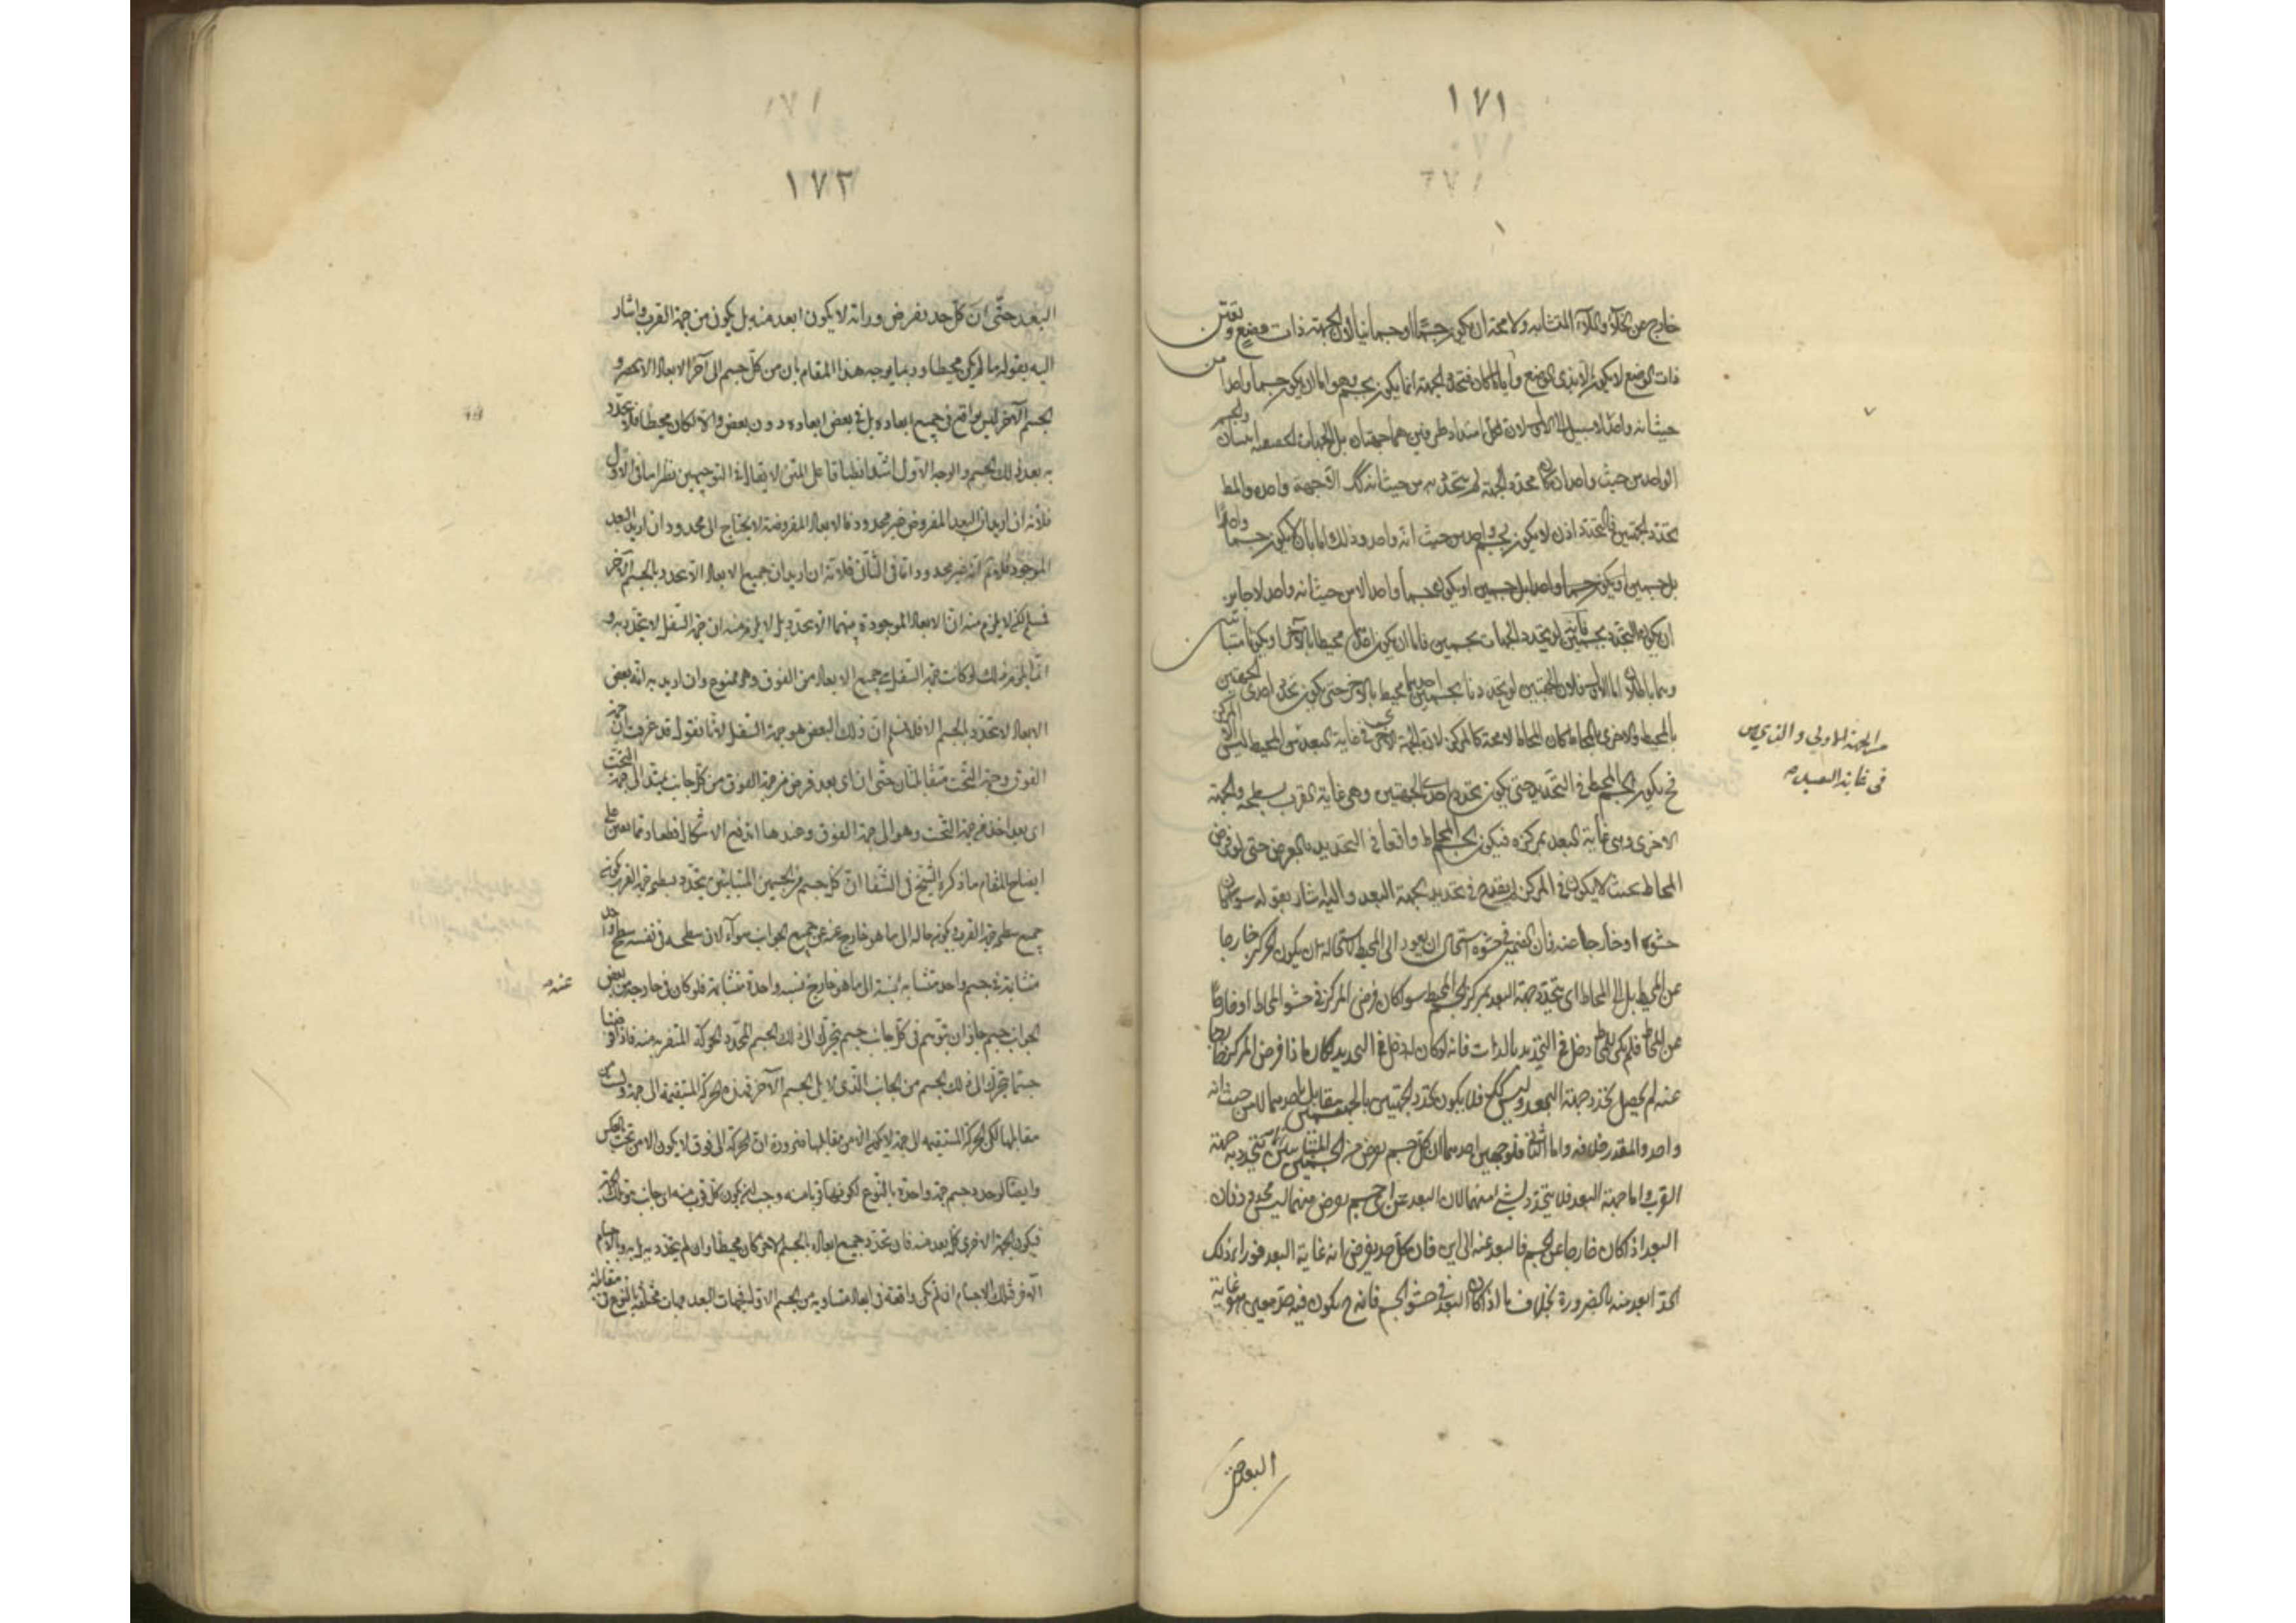 ١٧١
خارج عن الخلاء والملاء المتشابه ولا محة ان يكون جسما او جسمانيا لان الجهة ذات وضع وتعين
ذات الوضع لا يكون الا بذى الوضع وايا ما كان فتحدد الجهة انما يكون بجسم وهو اما ان يكون جسما واحدا من
حيث انه واحد لا سبيل الى الاول لان لكل امتداد طرفين هما جهتان والجسم
الواحد من حيث واحد ان كان محدد الجهة لم يتحدد به من حيث انه كك الا جهة واحدة والمط
تحدد الجهتين فالتحدد اذن لا يكون بجسم واحد من حيث انه واحد وذلك اما بان لا يكون جسما واحدا
بل جسمين او يكون جسما واحدا لا من حيث انه واحد لا جايز
ان يكون التحدد بجسمين لو تحدد الجهات بجسمين فاما ان يكون محيطا بالآخر او يكونا متباينين
وهما باطلان اما الاول فلان الجهتين لو تحددتا بجسمين احدهما محيط بالاخر حتى يكون تحدد احدى الجهتين
بالمحيط والاخرى بالمحاط كان المحاط لا محة كالمركز لان الجهة الاخرى فى غاية البعد من المحيط ليس الا المركز
فح يكون الجسم المحيط فى التحديد حتى يكون تحدد احدى الجهتين وهى غاية القرب بسطحه والجهة
الاخرى وهى غاية البعد بمركزه فيكون الجسم المحاط واقعا فى التحديد بالعرض حتى لو فرض
المحاط بحيث لا يكون فى المركز لم يقدح فى تحديد الجهة البعد واليه اشار بقوله سواء كان
حشوه او خارجا عنه فان الضمير فى حشوه استحال ان يعود الى المحيط لاستحالة ان يكون المركز خارجا
عن المحيط بل الى المحاط اى يتحدد جهة البعد بمركز الجسم المحيط سوا كان فرض المركز فى حشو المحاط او خارجا
عن المحاط فلم يكن للمحاط دخل فى التحديد بالذات فانه لو كان له دخل فى التحديد لكان اذا فرض المركز خارجا
عنه لم يحصل تحدد جهة البعد وليس كك فلا يكون تحدد الجهتين بالجسمين بل باحدهما لا من حيث انه
واحد والمقدر خلافه واما الثانى فلوجهين احدهما ان كل جسم يفرض من الجسمين المتباينين يتحدد به جهة
القرب واما جهة البعد فلا يتحدد بشىء منهما لان البعد عن اى جسم يفرض منهما ليس محدود فان
البعد اذا كان خارجا عن الجسم فالبعد عنه الى اين فان كل حد يفرض انه غاية البعد فوراء ذلك
الحد ابعد منه بالضرورة بخلاف ما اذا كان البعد فى حشو الجسم فانه ح يكون فيه حد معين هو غاية
البعد حتى
من الجهة الاولى و التى ليس
فى غاية البعد صه
١٧٢
البعد حتى ان كل حد يفرض وراءه لا يكون ابعد منه بل يكون من جهة القرب واشار
اليه بقوله ما لم يكن محيطا وربما يوجه هذا المقام بان من كل جسم الى آخر الابعاد لا تنحصر و
الجسم الآخر ليس بواقع فى جميع ابعاده بل فى بعض ابعاده دون بعض والا لكان محيطا فلا يتحدد
به بعد ذلك الجسم والوجه الاول اشد انطباقا على المتن لا يقال فى التوجيهين نظر اما فى الاول
فلانه ان اريد ان البعد المفروض غير محدود فالابعاد المفروضة لا يحتاج الى محدد وان اريد البعد
الموجود فلا نم انه غير محدود واما فى الثانى فلانه ان اريد ان جميع الابعاد لا تتحدد بالجسم الآخر
فمسلم لكن لا يلزم منه ان الابعاد الموجودة بينهما لا تتحدد بل لا يلزم منه ان جهة السفل لا يتحدد به و
انما يلزم ذلك لو كانت جهة السفل فى جميع الابعاد من الفوق وهو ممنوع وان اريد به انه بعض
الابعاد لا تتحدد بالجسم الا فلا نسلم ان ذلك البعض هو جهة السفل لانا نقول قد عرفت ان جهة
الفوق وجهة التحت متقابلتان حتى ان اى بعد فرض من جهة الفوق من كل جانب يمتد الى جهة التحت
اى بعد اخذ من جهة التحت وهو الى جهة الفوق وعندها اندفع الاشكال قطعا ومما يعين على
ايضاح المقام ما ذكره الشيخ فى الشفا ان كل جسم من الجسمين المتباينين يتحدد بسطحه جهة القرب كونه
جميع سطحه جهة القرب يكون حاله الى ما هو خارج عنه عن جميع الجوانب سواء لان سطحه فى نفسه سطح واحد
متشابه فى جسم واحد متشابه نسبته الى ما هو خارج نسبة واحدة متشابهة فلو كان فى خارجه من بعض
الجوانب جسم جاز ان يتوهم فى كل جانب جسم يتحرك الى ذلك الجسم المحدد الحركة المتقربة منه فاذا فرضنا
جسما يتحرك الى ذلك الجسم من الجانب الذى لا يلى الجسم الآخر فهذه الحركة المستقيمة الى جهة وليست من
مقابلها لكن الحركة المستقيمة الى جهة لا يكون الا من مقابلها ضرورة ان الحركة الى فوق لا يكون الا من تحت وبالعكس
وايضا لو حدد جسم جهة واحدة بالنوع لكونها قربا منه وجب ان يكون كل قرب منه اى جانب هو تلك الجهة
فيكون الجهة الاخرى كل بعد منه فان تحدد جميع ابعاده بالجسم الاخر كان محيطا وان لم يتحدد به بل به وبالاجسام
الاخر فتلك الاجسام ان لم تكن واقعة فى ابعاد متساوية من الجسم الاول فجهات البعد جهات مختلفة بالنوع فى مقابلة
عنه صه